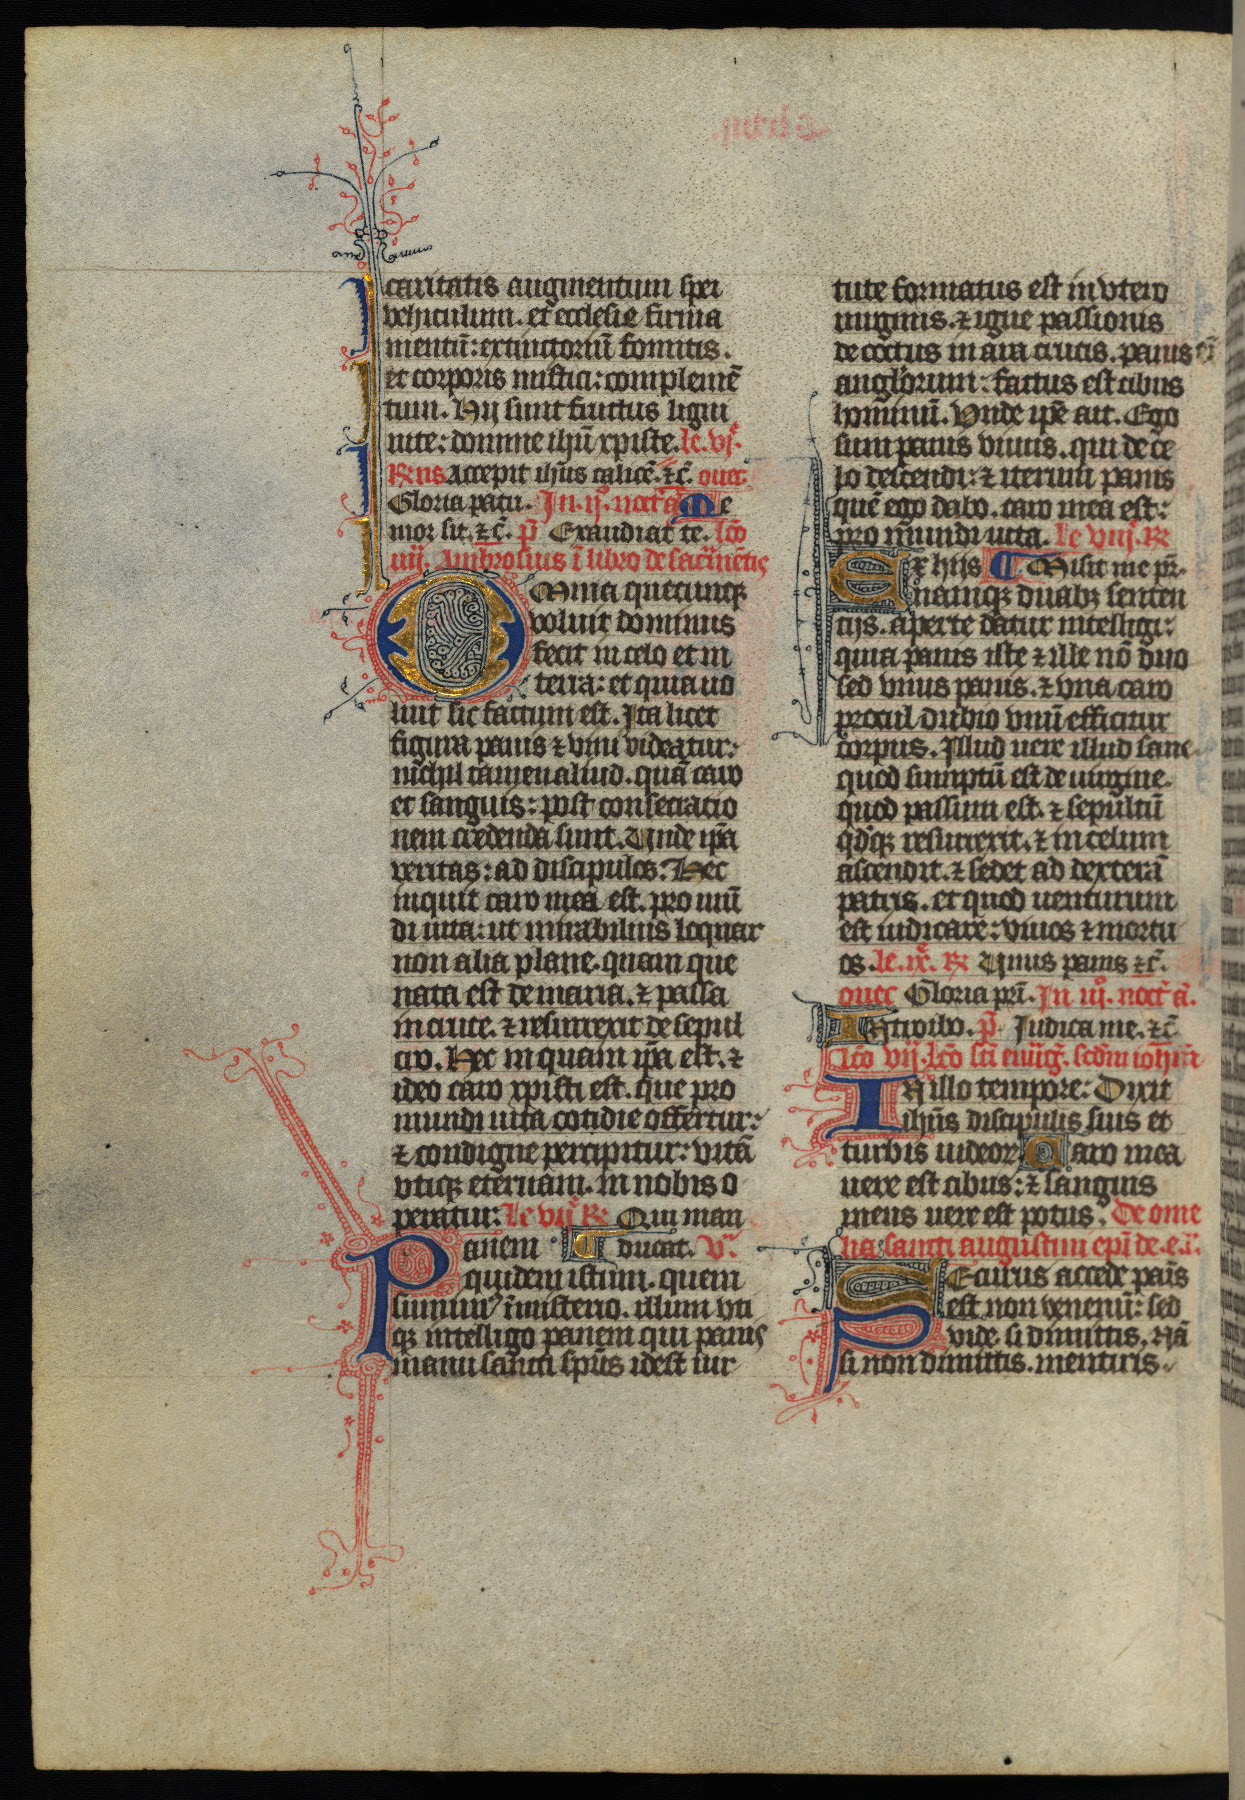 caritatis augmentum spei
vehiculum. et ecclesie firma
mentū: extinctoriū fomitis.
et corporis mistici: complemē
tum. Hij sunt fructus ligni
uite: domine ihū xpiste. le. vj.
Rn̄s Accepit ihūs calicē. ⁊c̄.
Gloria patri. In. ij. noct̄ a. Me
mor sit. ⁊c̄. p̄ Exaudiat te. lc̄o
iiij. Ambrosius ī libro de sacr̄mētis
Omnia quecunqꝫ
voluit dominus
fecit in celo et in
terra: et quia uo
luit sic factum est. Ita licet
figura panis ⁊ vini videatur:
nichil tamen aliud. quā caro
et sanguis: post consecratio
nem credenda sunt. Unde ipā
veritas: ad discipulos. Hec
inquit caro mea est. pro mū
di uita: ut mirabilius loquar
non alia plane. quam que
nata est de maria. ⁊ passa
in cruce. ⁊ resurrexit de sepul
cro. Hec inquam ipā est. ⁊
ideo caro xpisti est. que pro
mundi uita cotidie offertur:
⁊ condigne percipitur: vitā
vtiqꝫ eternam. in nobis o
peratur: Le vij. R̄ Qui man
Panem ducat. V̄.
quidem istum. quem
sumim⁹ ī misterio. illum vti
qꝫ intelligo panem qui panis
manu sancti sp̄us idest uir
tute formatus est in vtero
uirginis. ⁊ igne passionis
decoctus in ara crucis. panis eī
anglorum: factus est cibus
hominū. Vnde ipē ait. Ego
sum panis viuus. qui de ce
lo descendi: ⁊ iterum panis
quē ego dabo. caro mea est:
pro mundi uita. le viij. R̄
Ex hijs Misit me pr̄.
namqꝫ duabꝫ senten
tijs. aperte datur intelligi:
quia panis iste ⁊ ille nō duo
sed vnus panis. ⁊ vna caro
procul dubio vnū efficitur
corpus. Illud uere illud sane
quod sumptū est de uirgine.
quod passum est. ⁊ sepultū
qd̓qꝫ resurrexit. ⁊ in celum
ascendit. ⁊ sedet ad dexterā
patris. et quod uenturum
est iudicare: viuos ⁊ mortu
os. le. ix. R̄ Unus panis ⁊c̄.
Gloria pr̄i. In iij. noct̄ a.
Introibo. p̄. Iudica me. ⁊c̄
lc̄o vij. lc̄o sc̄i euāg̅. scd̄m ioh̄em
In illo tempore: Dixit
ihūs discipulis suis et
turbis iudeor̄ Caro mea
uere est cibus: ⁊ sanguis
meus uere est potus. De ome
lia sancti augustini ep̄i de. e. i.
Securus accede panis
est non venenū: sed
vide. si dimittis. Nā
si non dimittis. mentiris.